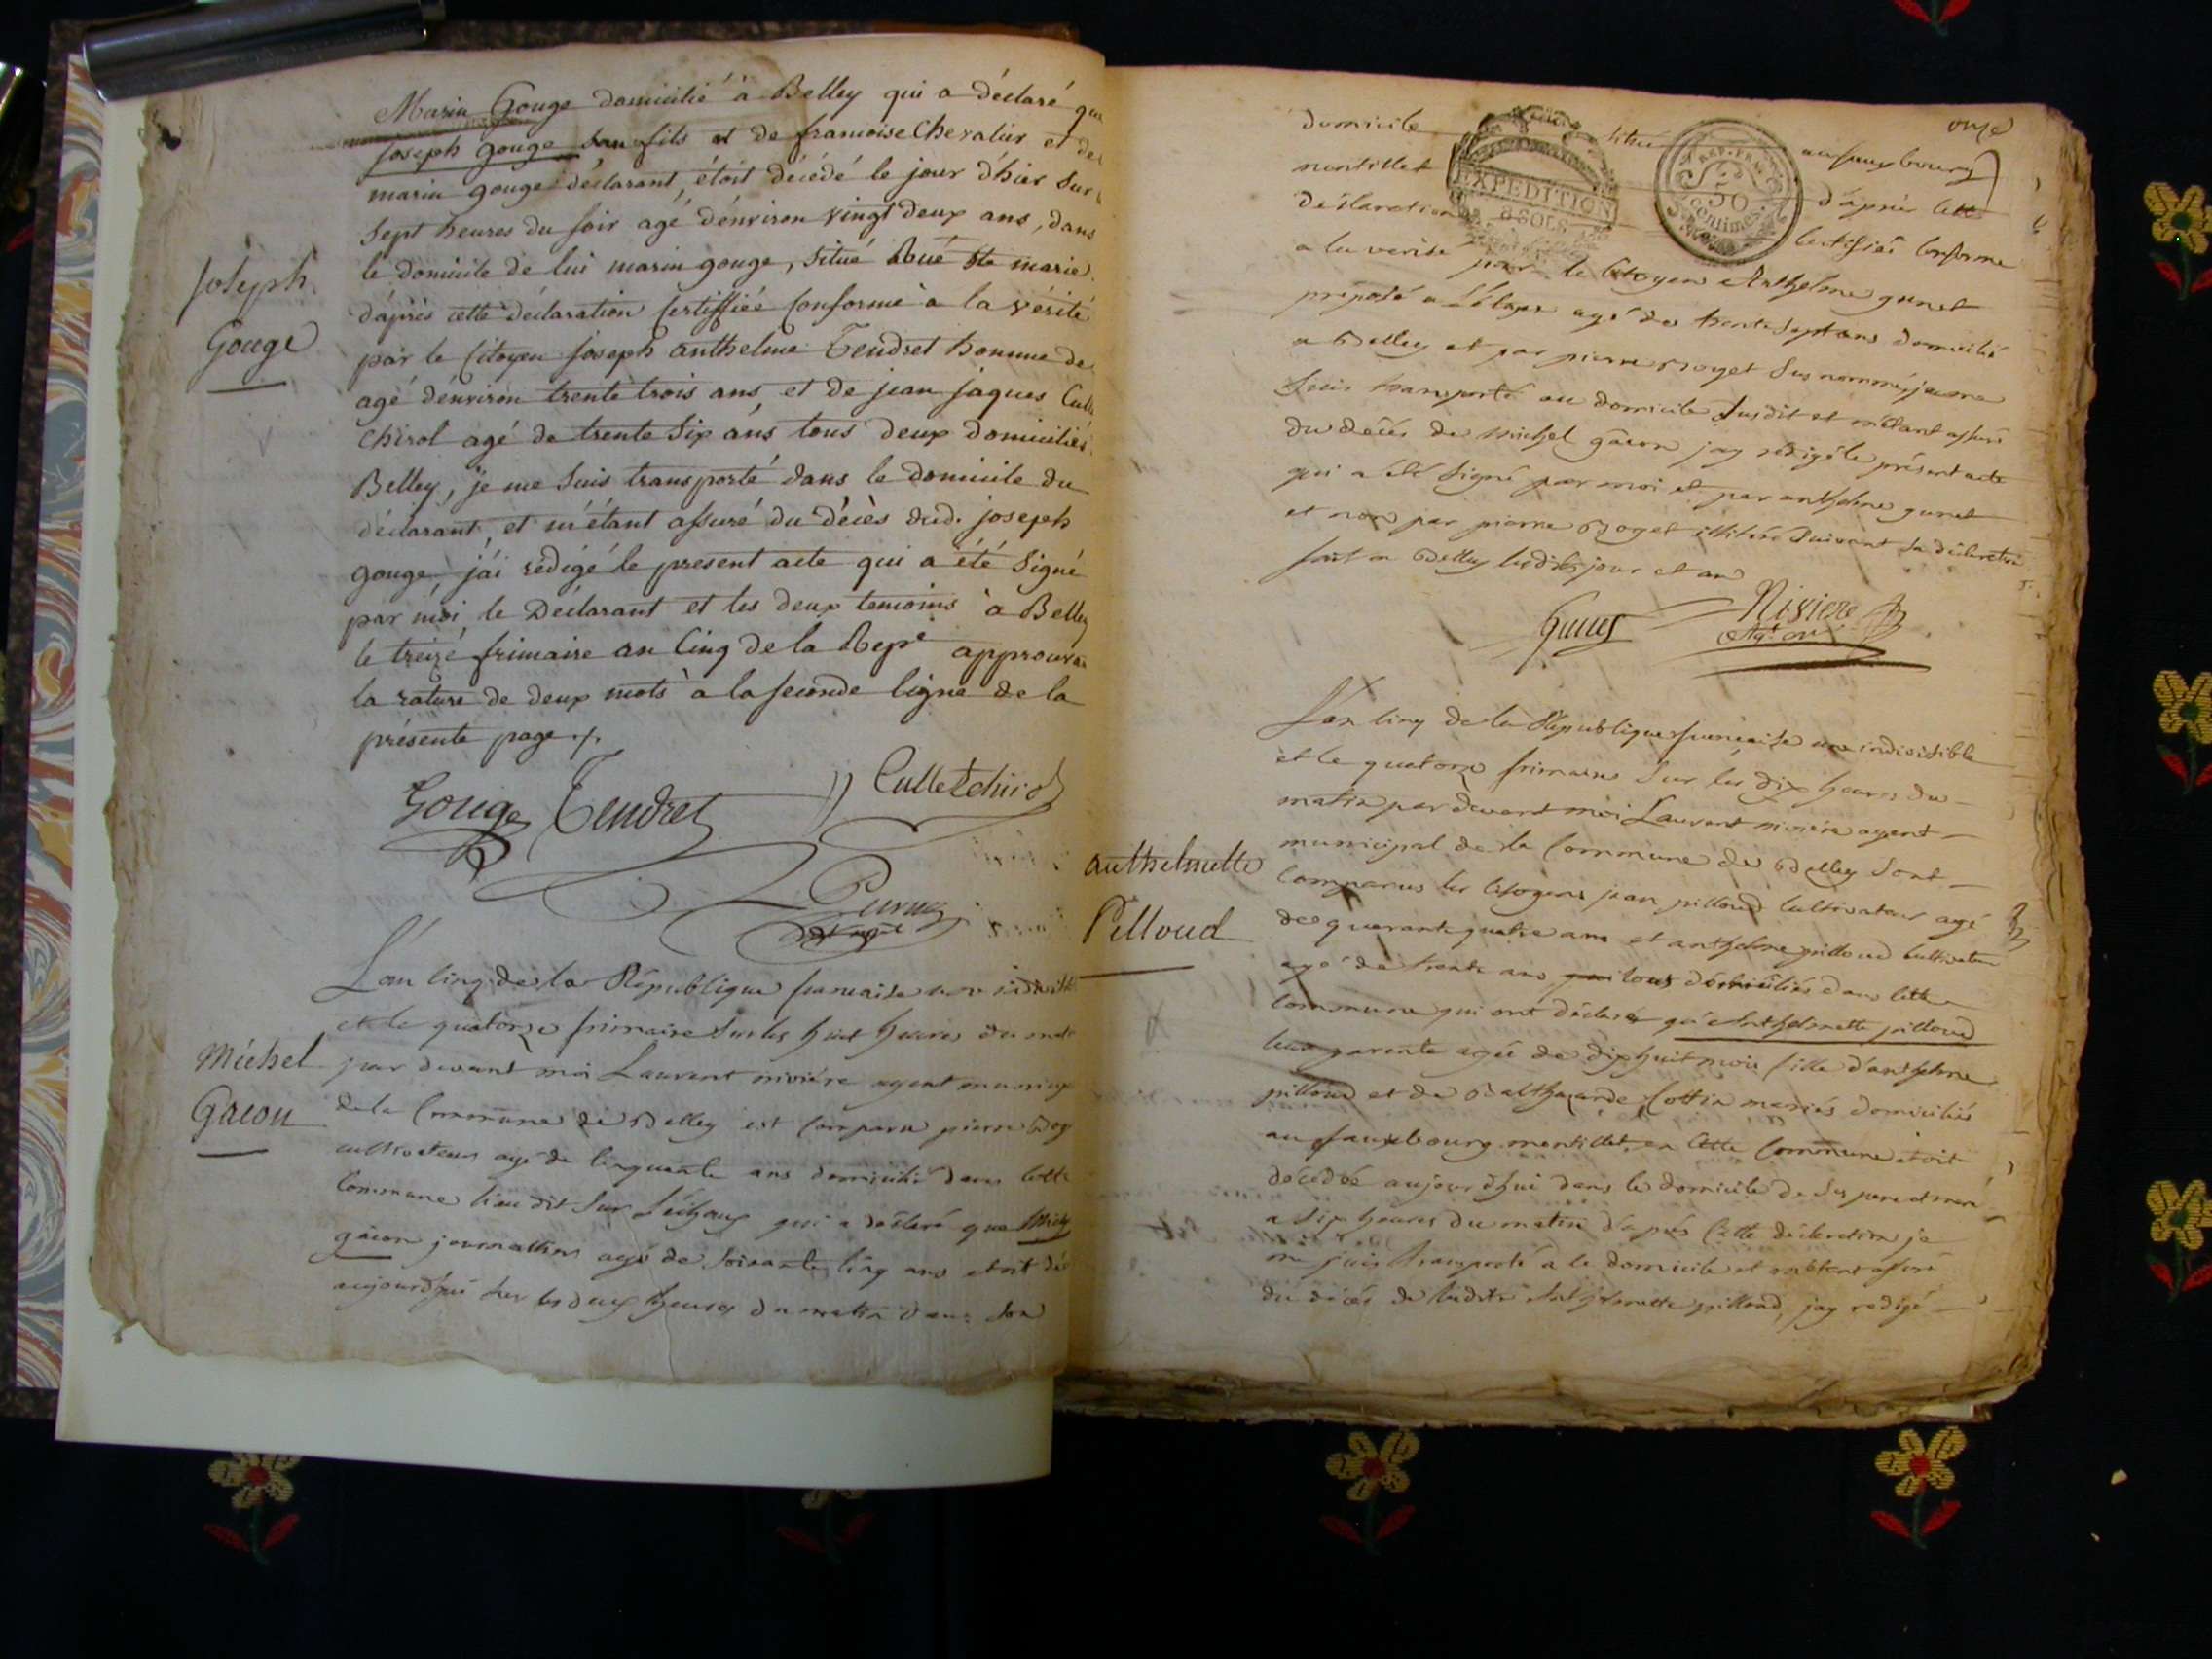 Marin Gouge domicilié à Belley qui a déclaré que
Joseph gouge son fils et de francoise Chevalier et de
marin gouge déclarant, étoit décédé le jour d'hier sur
Sept heures du soir agé d'environ vingt deux ans, dans
le domicile de lui marin gouge, situé Rue Ste marie.
d'après cette déclaration certiffiée conforme à la vérité
par le citoyen Joseph anthelme Tendret homme de
agé d'environ trente trois ans, et de jean jaques Cull
Chirol agé de trente six ans tous deux domiciliés
Belley, je me suis transporté dans le domicile du
déclarant, et m'étant assuré du décès dud. joseph
gouge, j'ai rédigé le present acte qui a été signé
par moi, le Déclarant et les deux temoins à Belley
le treize frimaire an cinq de la Repe approuvé
la rature de deux mots à la seconde ligne de la
présente page ./.
Joseph
Gouge
Gouge Tendret Culletchirol
L'an cinq de la République francaise une indivisib
et le quatorze frimaire sur les huit heures du mat
par devant moi Laurent nivière agent municip
de la Commune de Belley est comparu pierre Bog
cultivateur agé de cinquante ans domicilié dans cette
Commune lieu dit sur Léchaux qui a déclaré que Mich
gacon journallier agé de soixante cinq ans etoit déc
aujourdhui sur les deux heures du matin dans son
Michel
Gacon
onze
domicile situé au fauxbourg
montillet d'après cette
déclaration certifiée conforme
EXPEDITION
8 SOLS
REP. FRA.
50
centimes
a la verité par le Citoyen Anthelme gunet
preposé a L'étape agé de trente sept ans domicilié
a Belley et par pierre Boget susnommé, je me
suis transporté au domicile susdit et m'étant assuré
du décès de michel gâcon jay redigé le présent acte
qui a été signé par moi et par anthelme gunet
et non par pierre Boget illitéré suivant sa déclaration
fait a Belley lesdits jour et an
Gunet Niviere
L'an cinq de la République francaise une indivisible
et le quatorze frimaire sur les dix heures du
matin par devant moi Laurent nivière agent
municipal de la Commune de Belley sont
Comparus les citoyens jean pilloud cultivateur agé
de quarante quatre ans et anthelme pilloud cultivateur
agé de trente ans tous domiciliés dans cette
Commune qui ont déclaré qu'Anthelmette pilloud
leur parente agée de dix huit mois fille d'anthelme
pilloud et de Balthazarde Cottin mariés domiciliés
au fauxbourg montillet, en cette Commune etoit
décédée aujourdhui dans le domicile de ses pere et mere
a six heures du matin d'après cette déclaration je
me suis transporté a le domicile et m'étant assuré
du décès de ladite Anthelmette pilloud, jay redigé
Anthelmette
Pilloud